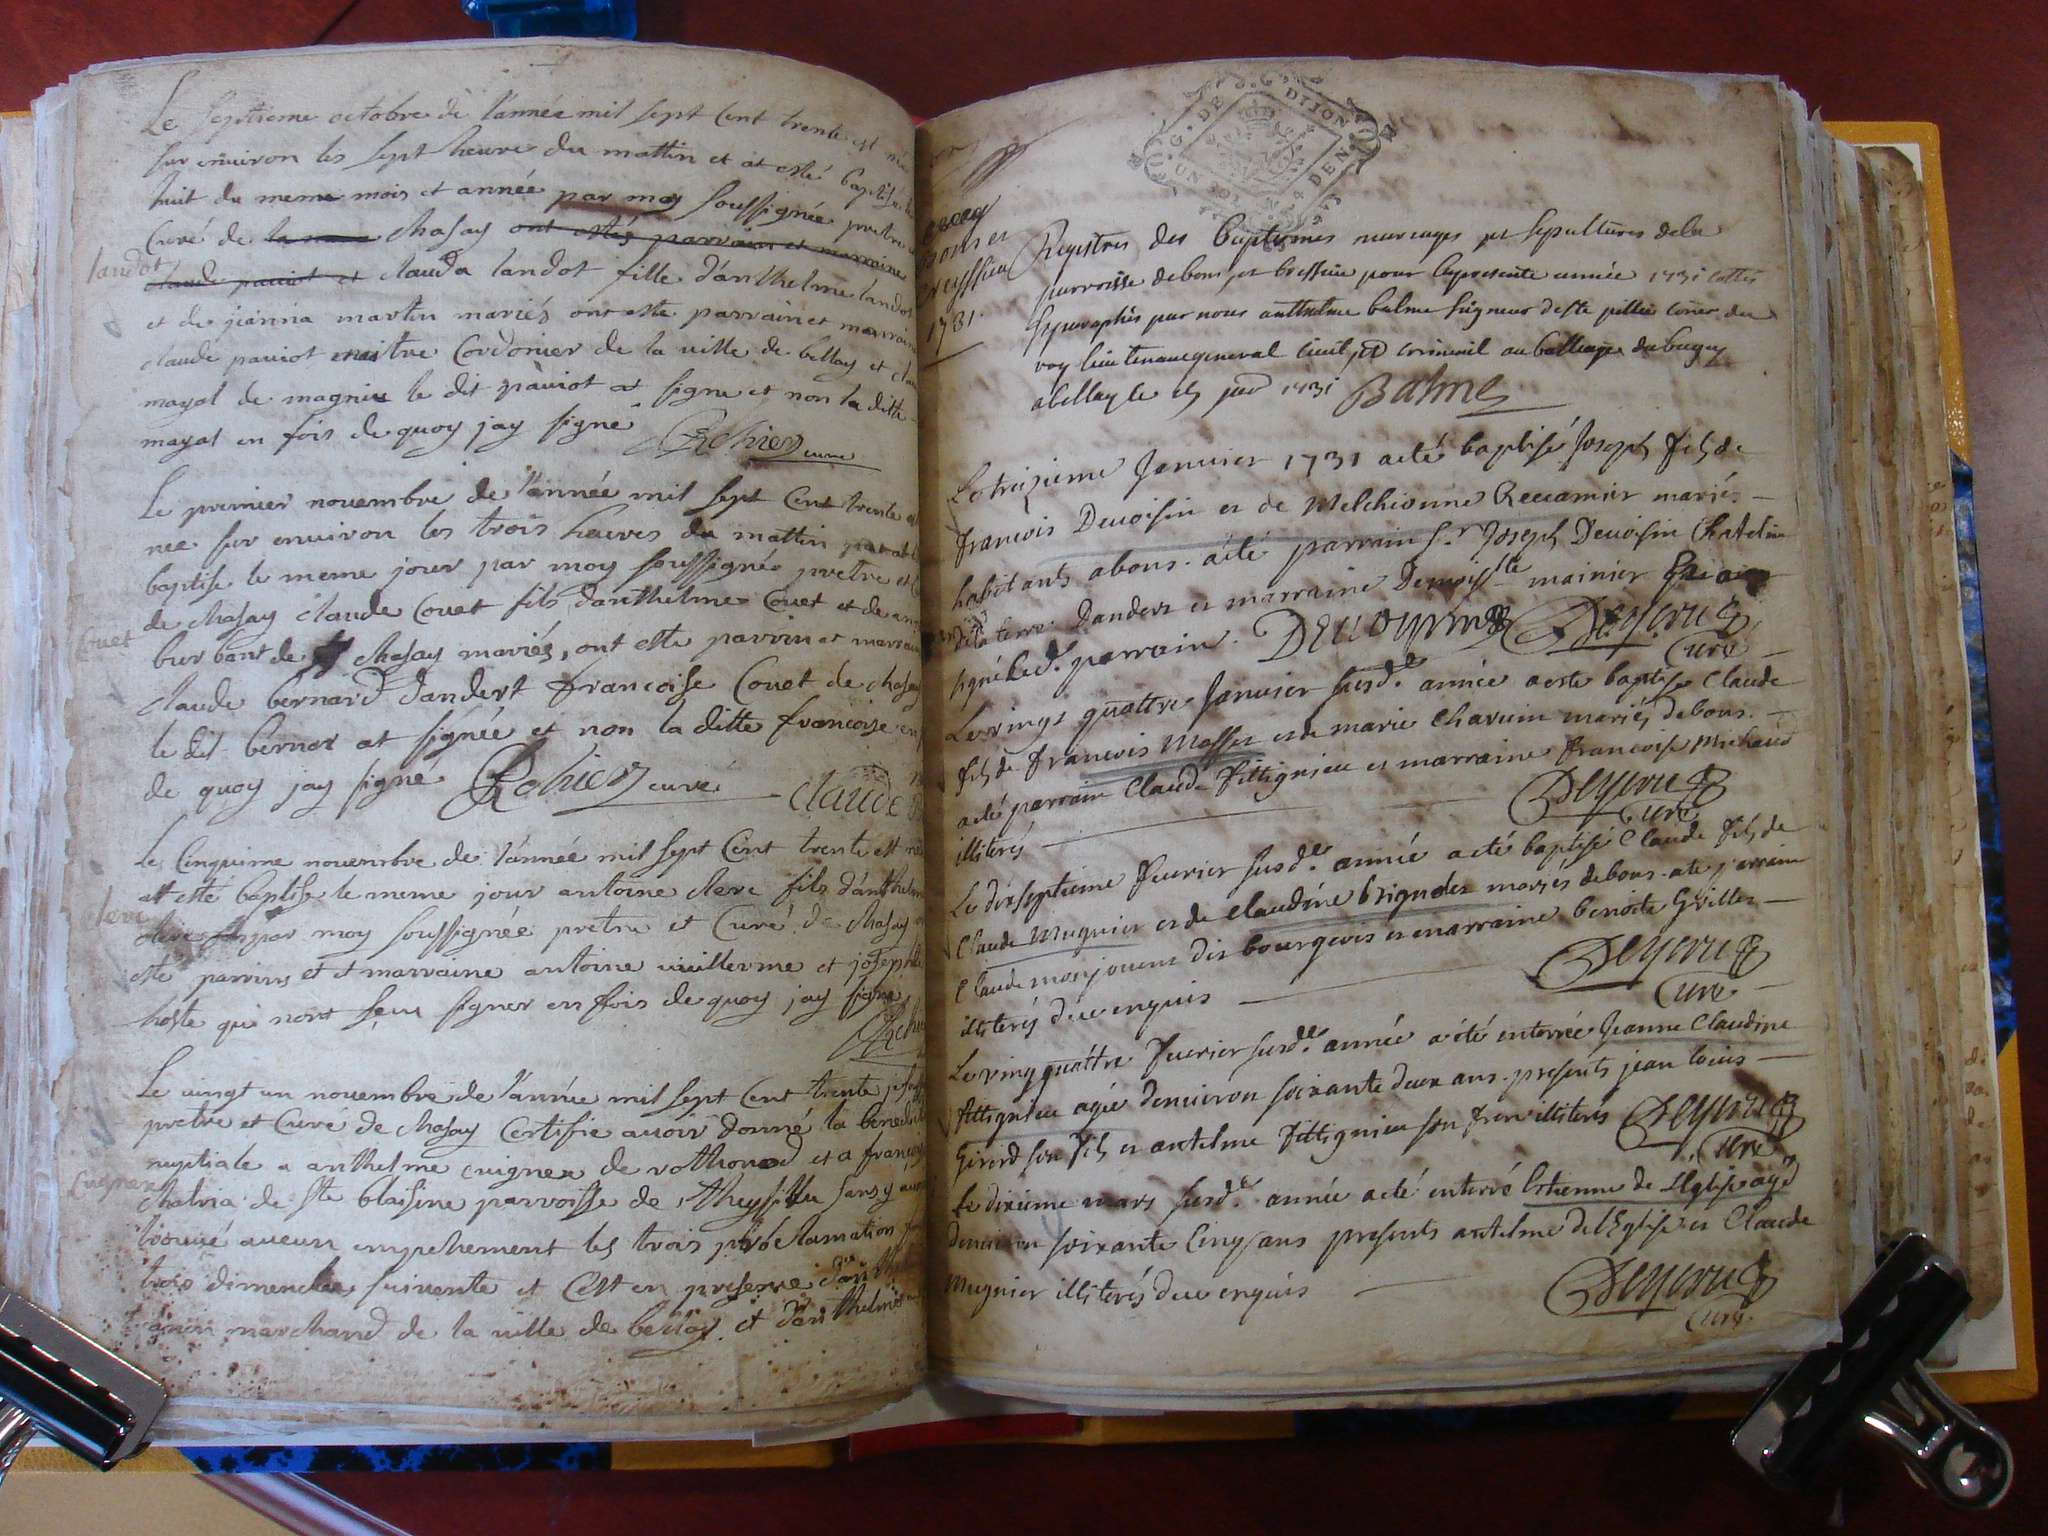 Le septieme octobre de l'année mil sept Cent trente est né
sur environ les sept heure du mattin et at esté baptisé le
huit du meme mois et année par moy soussignée pretre et
Curé de chasay ont estés parrain et marraine
landot
claude paviot et clauda landot fille d'anthelme landot
et de jianna martin mariés ont este parrain et marraine
claude paviot maitre Cordonier de la ville de bellay et
mayal de magnieu le dit paviot at signe et non la ditte
mayal en fois de quoy jay signé Rohier curé
Le premier novembre de l'année mil sept Cent trente est
nee sur environ les trois heures du mattin
baptise le meme jour par moy soussignée pretre et
Couet
de chasay claude Couet fils d'anthelme Couet et de
burbant de chasay mariés, ont este parrin et marraine
claude bernard d'andert francoise Couet de chasay
le dit bernar at signée et non la ditte francoise en
de quoy jay signé Rohier curé claude
Le Cinquime novembre de l'année mil sept Cent trente est né
at esté baptise le meme jour antoine clerc fils d'anthelme
clerc
clerc par moy soussignée pretre et Curé de chasay
este parrins et marraine antoine vuillerme et josephte
hoste qui nont sçeu signer en fois de quoy jay signe
Rohier
Le vingt un novembre de l'année mil sept Cent trente je
pretre et Curé de chasay Certifie avoir donné la benedi
nuptiale a anthelme cuigner de rothonod et a françoise
Cuigner
chatria de Ste blaisine parroisse de sans y avoir
trouvé aucun empechement les trois proclamation
trois dimenche suivente et C'est en presence
marchand de la ville de bellay et d'anthelme
bons et
1731
G. DE DIJON
UN SOL 4 DEN
Registres des baptemes mariages et sepultures de la
parroisse de bons et bressieu pour la presente année 1731 cottés
et paraphés par nous anthelme balme seigneur de Ste pillie coner du
roy lieutenant general civil et criminil au balliage du bugey
a bellay le 1731 Balme
Le treizieme Janvier 1731 a eté baptisé Joseph fils de
francois Devoisin et de Melchionne Recamier mariés
habitants a bons. a eté parrain Sr Joseph Devoisin Chatelin
de la terre Dandert et marraine Demoiselle mainier
signé led. parrain. Devoisin Deyvrieu
Curé
Le vingt quattre Janvier susde. année a este baptise Claude
fils de francois Masser et de marie Charvin mariés de bons.
a eté parrain Claude Fittignieu et marraine francoise Michaud
illiterés Deyvrieu
Curé
Le dix septieme Fevrier susde. année a eté baptisé Claude fils de
Claude Mugnier et de Claudine brignder mariés de bons. a eté parrain
Claude monjouent dit bourgeois et marraine benoite Griller
illiterés d'eu enquis Deyvrieu
Curé
Le ving quattre Fevrier susde. année a été enterrée Jeanne Claudine
fittignieu agée denviron soixante deux ans. presents jean louis
Girerd son fils et antelme Fittignieu son frere illiterés Deyvrieu
Curé
Le dixieme mars susde. année a eté enterré Estienne de L'Eglise agé
denviron soixante Cinq ans presents antelme de l'Eglise et Claude
Mugnier illiterés d'eu enquis Deyvrieu
Curé